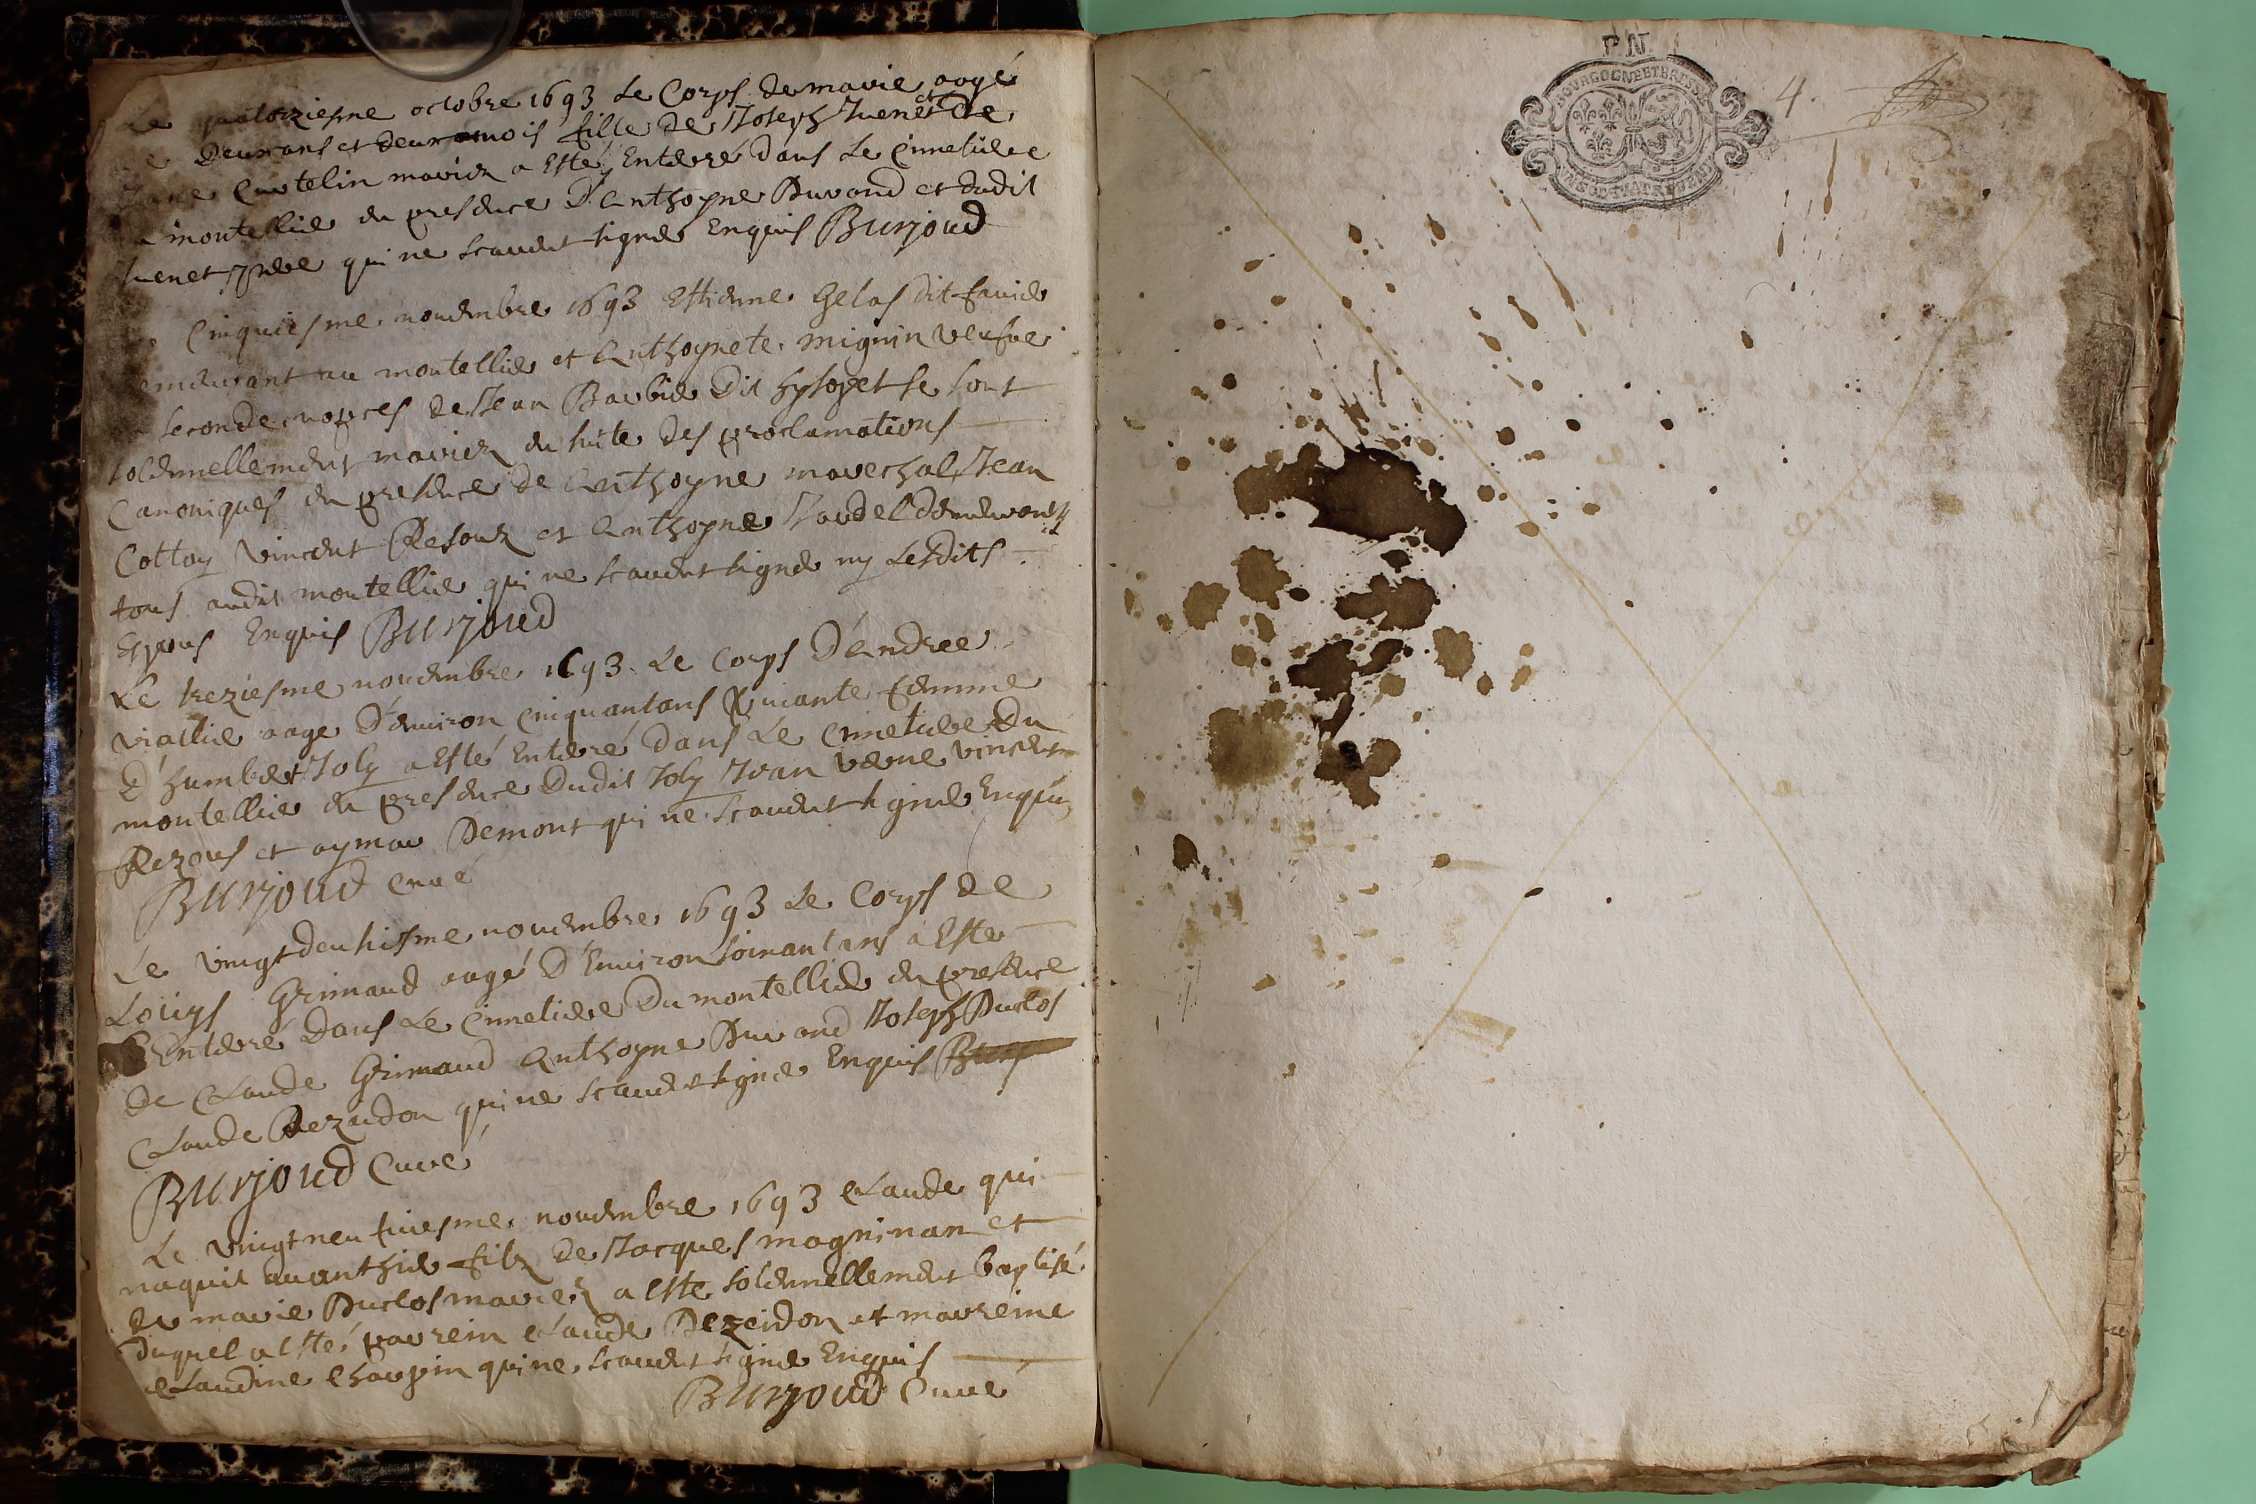 Le quatorziesme octobre 1693 Le Corps de marie aagé
de Deux ans et deux mois fille de Joseph Juenet et De
Curtelin mariez a Esté Enterré dans Le Cimetiere
montellier en presence D'Anthoyne Durand et dudit
Juenet pere qui ne scavent signer Enquis Burjoud
Cinquiesme novembre 1693 Estienne Gelas dit favier
demeurant au montellier et Anthoynete mignin veufve
seconde nopces de Jean Barbier Dit se sont
solennellement mariez en suite des proclamations
Canoniques en presence de Anthoyne marechal Jean
Cottey Vincent Resouz et Anthoyne demeurants
tous audit montellier qui ne scavent signer ny Lesdits
Espous Enquis Burjoud
Le treziesme novembre 1693 Le Corps D'Andree
viallier aage D'environ Cinquantans vivante femme
D'humbert Joly a Esté Enterré dans Le Cimetiere Du
montellier en presence Dudit Joly Jean verne vincent
Rezous et aymar Demont qui ne scavent signer Enquis
Burjoud Curé
Le vingt deuhisme novembre 1693 Le Corps de
Louys Grimaud aagé D'Environ soixantans a Este
Enterré Dans Le Cimetiere Du montellier en presence
de Claude Grimaud Anthoyne Durand Joseph Duclos
Claude Dezeidon qui ne scavent signer Enquis
Burjoud Curé
Le Vingt neufviesme novembre 1693 Claude qui
naquit avanthier filz de Jacques magninan et
de marie Duclos mariez a este solennellement baptisé
duquel a esté parrein Claude Dezeidon et marreine
Claudine Charpin qui ne scavent signer Enquis
Burjoud Curé
P.N.
BOURGOGNE ET BRESSE
4.